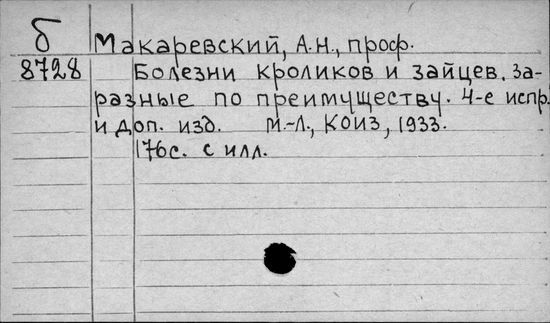 б
Макаревский, А.Н., проф.
8728
Болезни кроликов и зайцев. За-
разные по преимуществу. 4-е испр.
и доп. изд. М.-Л., КОИЗ, 1933.
176с. с илл.